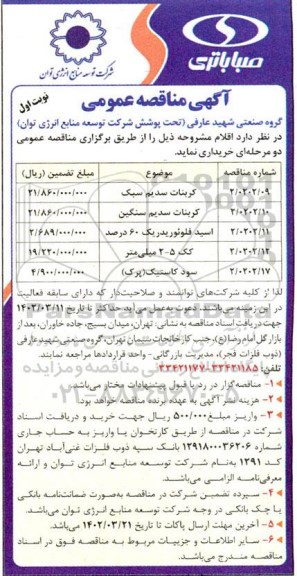 صباباتری
شرکت توسعه منابع انرژی توان
نوبت اول
آگهی مناقصه عمومی
گروه صنعتی شهید عارفی (تحت پوشش شرکت توسعه منابع انرژی توان)
در نظر دارد اقلام مشروحه ذیل را از طریق برگزاری مناقصه عمومی
دو مرحله‌ای خریداری نماید.
شماره مناقصه موضوع مبلغ تضمین (ریال)
۲/۰۲۰۲/۰۹ کربنات سدیم سبک ۲۱/۸۶۰/۰۰۰/۰۰۰
۲/۰۲۰۲/۱۰ کربنات سدیم سنگین ۲۱/۸۶۰/۰۰۰/۰۰۰
۲/۰۲۰۲/۱۱ اسید فلوئوریدریک ۶۰ درصد ۲/۶۸۹/۰۰۰/۰۰۰
۲/۰۲۰۲/۱۲ کک ۵-۲ میلی‌متر ۱۹/۲۲۰/۰۰۰/۰۰۰
۲/۰۲۰۲/۱۷ سود کاستیک (پرک) ۴/۹۰۰/۰۰۰/۰۰۰
لذا از کلیه شرکت‌های توانمند و صلاحیت‌دار که دارای سابقه فعالیت
در این زمینه می‌باشند دعوت به‌عمل می‌آید حداکثر تا تاریخ ۱۴۰۲/۰۳/۱۱
جهت دریافت اسناد مناقصه به نشانی: تهران، میدان بسیج، جاده خاوران، بعد از
بازار گل امام رضا (ع)، جنب کارخانجات سیمان تهران، گروه صنعتی شهید عارفی
(ذوب فلزات فجر)، مدیریت بازرگانی - واحد قراردادها مراجعه نمایند.
تلفن: ۳۳۴۲۱۱۸۵-۳۳۴۲۱۱۷۷
۱- مناقصه‌گزار در رد یا قبول پیشنهادات مختار می‌باشد.
۲- هزینه نشر آگهی به عهده برنده مناقصه خواهد بود.
۳- واریز مبلغ ۵۰۰/۰۰۰ ریال جهت خرید و دریافت اسناد
شرکت در مناقصه از طریق کارتخوان یا واریز به حساب جاری
شماره ۱۲۹۱۸۰۰۰۳۶۲۰۶ بانک سپه ذوب فلزات غنی‌آباد تهران
کد ۱۲۹۱ به‌نام شرکت توسعه منابع انرژی توان و ارائه
معرفی‌نامه الزامی می‌باشد.
۴- سپرده تضمین شرکت در مناقصه به‌صورت ضمانت‌نامه بانکی
یا چک بانکی در وجه شرکت توسعه منابع انرژی توان می‌باشد.
۵- آخرین مهلت ارسال پاکات تا تاریخ ۱۴۰۲/۰۳/۲۱ می‌باشد.
۶- سایر اطلاعات و جزییات مربوط به مناقصه فوق در اسناد
مناقصه مندرج می‌باشد.